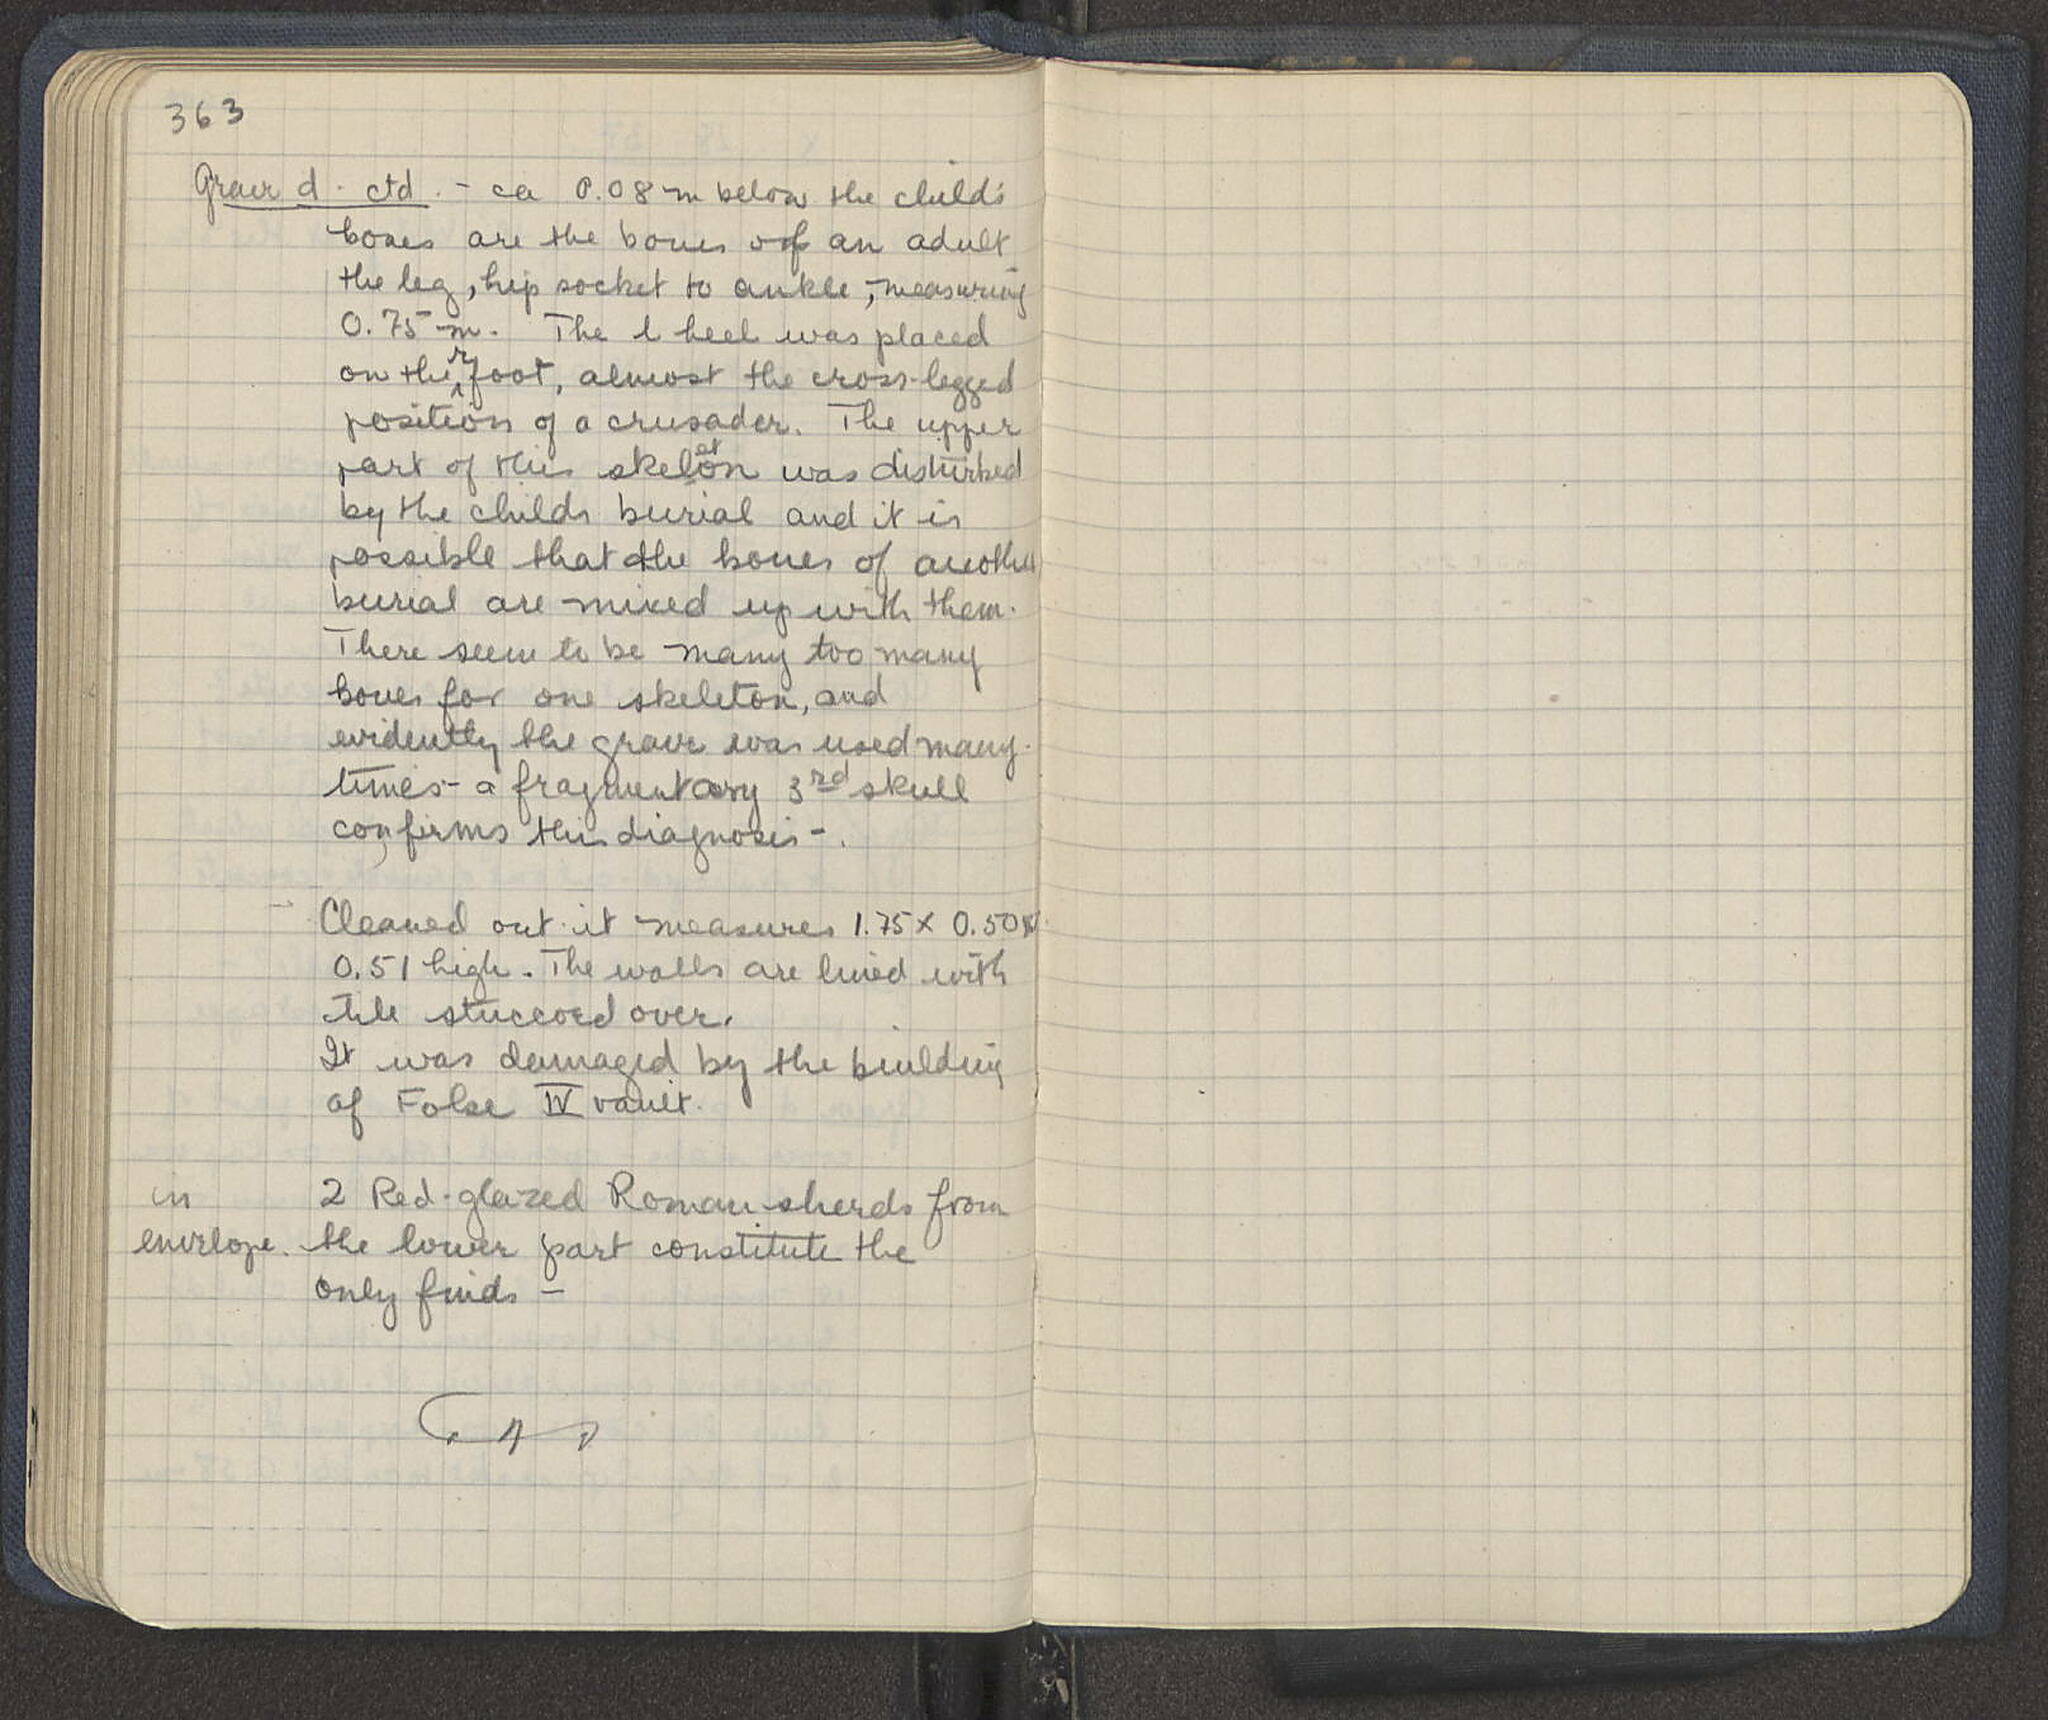 363
Grave d. ctd. - ca 0.08 m below the child's
bones are the bones of an adult
the leg, hip socket to ankle, measuring
0.75 m. The l heel was placed
on the r foot, almost the cross-legged
position of a crusader. The upper
part of this skeleton was disturbed
by the childs burial and it is
possible that the bones of another
burial are mixed up with them.
There seem to be many too many
bones for one skeleton, and
evidently the grave was used many
times - a fragmentary 3rd skull
confirms this diagnosis -.
Cleaned out it measures 1.75 x 0.50 x
0.51 high. The walls are lined with
tile stuccoed over.
It was damaged by the building
of False IV vault.
in 2 Red-glazed Roman sherds from
envelope. the lower part constitute the
only finds -